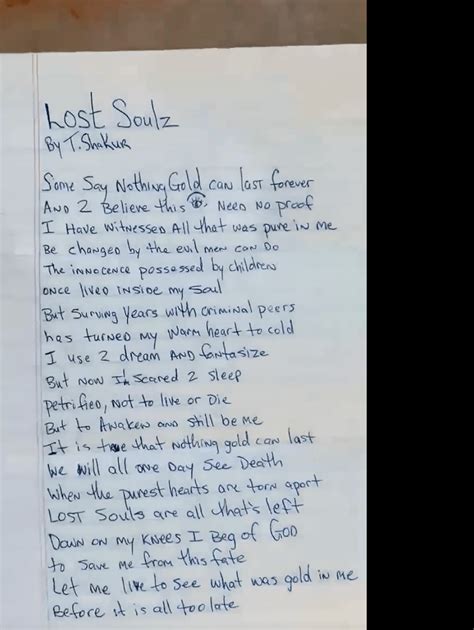 Lost Soulz
By T. Shakur
Some Say Nothing Gold can last forever
AND 2 Believe this 👁 Need No proof
I Have witnessed All that was pure in me
Be changed by the evil men can Do
The innocence possessed by children
once lived inside my Soul
But Surving Years with criminal peers
has turned my warm heart to cold
I use 2 dream AND fantasize
But now I'm Scared 2 sleep
petrified, not to live or Die
But to Awaken and still be me
It is true that nothing gold can last
We will all one Day See Death
When the purest hearts are torn apart
LOST Souls are all that's left
Down on my knees I Beg of God
to Save me from this fate
Let me live to See what was gold in me
Before it is all too late